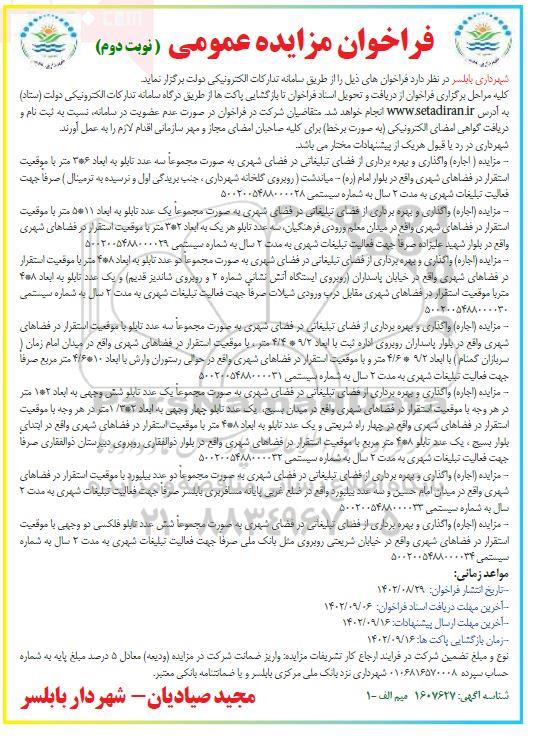 فراخوان مزایده عمومی ( نوبت دوم )
شهرداری بابلسر در نظر دارد فراخوان های ذیل را از طریق سامانه تدارکات الکترونیکی دولت برگزار نماید.
کلیه مراحل برگزاری فراخوان از دریافت و تحویل اسناد فراخوان تا بازگشایی پاکت ها از طریق درگاه سامانه تدارکات الکترونیکی دولت (ستاد)
به آدرس www.setadiran.ir انجام خواهد شد. متقاضیان شرکت در فراخوان در صورت عدم عضویت در سامانه، نسبت به ثبت نام و
دریافت گواهی امضای الکترونیکی (به صورت برخط) برای کلیه صاحبان امضای مجاز و مهر سازمانی اقدام لازم را به عمل آورند.
شهرداری در رد یا قبول هریک از پیشنهادات مختار می باشد.
-مزایده ( اجاره) واگذاری و بهره برداری از فضای تبلیغاتی در فضای شهری به صورت مجموعاً سه عدد تابلو به ابعاد ۶*۳ متر با موقعیت
استقرار در فضاهای شهری واقع در بلوار امام (ره) - میاندشت ( روبروی گلخانه شهرداری ، جنب بریدگی اول و نرسیده به ترمینال ) صرفاً جهت
فعالیت تبلیغات شهری به مدت ۲ سال به شماره سیستمی ۵۰۰۲۰۰۵۴۸۸۰۰۰۰۲۸
-مزایده (اجاره) واگذاری و بهره برداری از فضای تبلیغاتی در فضای شهری به صورت مجموعاً یک عدد تابلو به ابعاد ۱۱*۵ متر با موقعیت
استقرار در فضاهای شهری واقع در میدان معلم ورودی فرهنگیان، سه عدد تابلو هر یک به ابعاد ۲*۳ متر با موقعیت استقرار در فضاهای شهری
واقع در بلوار شهید علیزاده صرفاً جهت فعالیت تبلیغات شهری به مدت ۲ سال به شماره سیستمی ۵۰۰۲۰۰۵۴۸۸۰۰۰۰۲۹
-مزایده (اجاره) واگذاری و بهره برداری از فضای تبلیغاتی در فضای شهری به صورت مجموعاً دو عدد تابلو به ابعاد ۸*۴ متر با موقعیت استقرار
در فضاهای شهری واقع در خیابان پاسداران (روبروی ایستگاه آتش نشانی شماره ۲ و روبروی شاندیز قدیم) و یک عدد تابلو به ابعاد ۸*۴
متر با موقعیت استقرار در فضاهای شهری مقابل درب ورودی شیلات صرفاً جهت فعالیت تبلیغات شهری به مدت ۲ سال به شماره سیستمی
۵۰۰۲۰۰۵۴۸۸۰۰۰۰۳۰
-مزایده (اجاره) واگذاری و بهره برداری از فضای تبلیغاتی در فضای شهری به صورت مجموعاً سه عدد تابلو با موقعیت استقرار در فضاهای
شهری واقع در بلوار پاسداران روبروی اداره ثبت با ابعاد ۹/۲ * ۴/۴ متر ، با موقعیت استقرار در فضاهای شهری واقع در میدان امام زمان (
سربازان گمنام ) با ابعاد ۹/۲ * ۴/۶ متر و با موقعیت استقرار در فضاهای شهری واقع در حوالی رستوران وارش با ابعاد ۱۰*۴/۶ متر مربع صرفاً
جهت فعالیت تبلیغات شهری به مدت ۲ سال به شماره سیستمی ۵۰۰۲۰۰۵۴۸۸۰۰۰۰۳۱
-مزایده (اجاره) واگذاری و بهره برداری از فضای تبلیغاتی در فضای شهری به صورت مجموعاً یک عدد تابلو شش وجهی به ابعاد ۲*۱ متر
در هر وجه با موقعیت استقرار در فضاهای شهری واقع در میدان بسیج، یک عدد تابلو چهار وجهی به ابعاد ۲*۱/۳متر در هر وجه با موقعیت
استقرار در فضاهای شهری واقع در چهار راه شریعتی و یک عدد تابلو به ابعاد ۸*۴ متر با موقعیت استقرار در فضاهای شهری واقع در ابتدای
بلوار بسیج ، یک عدد تابلو ۸*۴ متر مربع با موقعیت استقرار در فضاهای شهری واقع در بلوار ذوالفقاری روبروی دبیرستان ذوالفقاری صرفاً
جهت فعالیت تبلیغات شهری به مدت ۲ سال به شماره سیستمی ۵۰۰۲۰۰۵۴۸۸۰۰۰۰۳۲
-مزایده (اجاره) واگذاری و بهره برداری از فضای تبلیغاتی در فضای شهری به صورت مجموعاً دو عدد بیلبورد با موقعیت استقرار در فضاهای
شهری واقع در میدان امام حسین و سه عدد بیلبورد واقع در ضلع غربی پایانه مسافربری بابلسر صرفاً جهت فعالیت تبلیغات شهری به مدت ۲
سال به شماره سیستمی ۵۰۰۲۰۰۵۴۸۸۰۰۰۰۳۳
-مزایده (اجاره) واگذاری و بهره برداری از فضای تبلیغاتی در فضای شهری به صورت مجموعاً شش عدد تابلو فلکسی دو وجهی با موقعیت
استقرار در فضاهای شهری واقع در خیابان شریعتی روبروی متل بانک ملی صرفاً جهت فعالیت تبلیغات شهری به مدت ۲ سال به شماره
سیستمی ۵۰۰۲۰۰۵۴۸۸۰۰۰۰۳۴
مواعد زمانی:
-تاریخ انتشار فراخوان: ۱۴۰۲/۰۸/۲۹
-آخرین مهلت دریافت اسناد فراخوان: ۱۴۰۲/۰۹/۰۶
-آخرین مهلت ارسال پیشنهادات: ۱۴۰۲/۰۹/۱۶
-زمان بازگشایی پاکت ها: ۱۴۰۲/۰۹/۱۶
نوع و مبلغ تضمین شرکت در فرایند ارجاع کار تشریفات مزایده: واریز ضمانت شرکت در مزایده (ودیعه) معادل ۵ درصد مبلغ پایه به شماره
حساب سپرده ۰۱۰۶۸۱۶۵۷۰۰۰۸ شهرداری نزد بانک ملی مرکزی بابلسر و یا ضمانتنامه بانکی معتبر.
شناسه آگهی: ۱۶۰۷۶۲۷ میم الف -۱
مجید صیادیان – شهردار بابلسر